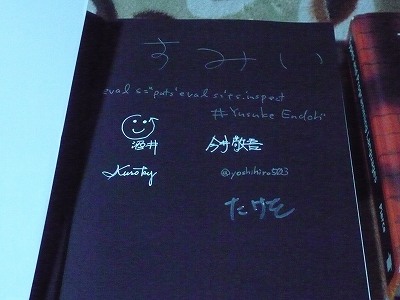 すみい
eval s="puts'eval s='+s.inspect
#Yusuke Endoh
酒井 今井敬吾
@yoshihiro503
たけを